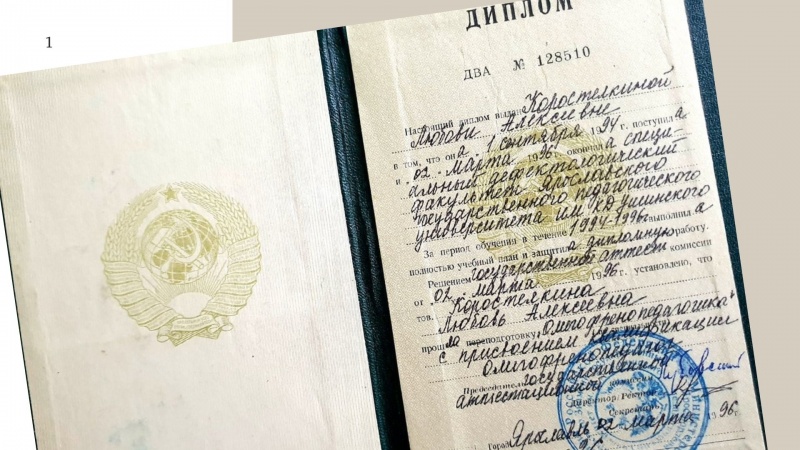 1
ДИПЛОМ
ДВА № 128510
Настоящий диплом выдан Коростелкиной
Любови Алексеевне
в том, что она 1 сентября 1994 г. поступила
и 02 марта 1996 окончила специ-
альный дефектологический
факультет Ярославского
государственного педагогического
университета им. К.Д. Ушинского
За период обучения в течение 1994-1996г. выполнила
полностью учебный план и защитила дипломную работу.
Решением государственной аттест. комиссии
от 02 марта 1996г. установлено, что
тов. Коростелкина
Любовь Алексеевна
прошла переподготовку „Олигофренопедагогика“
с присвоением квалификации
олигофренопедагог
Председатель государственной
аттестационной комиссии
Директор/Ректор
Секретарь
Город Ярославль 02 марта 1996г.